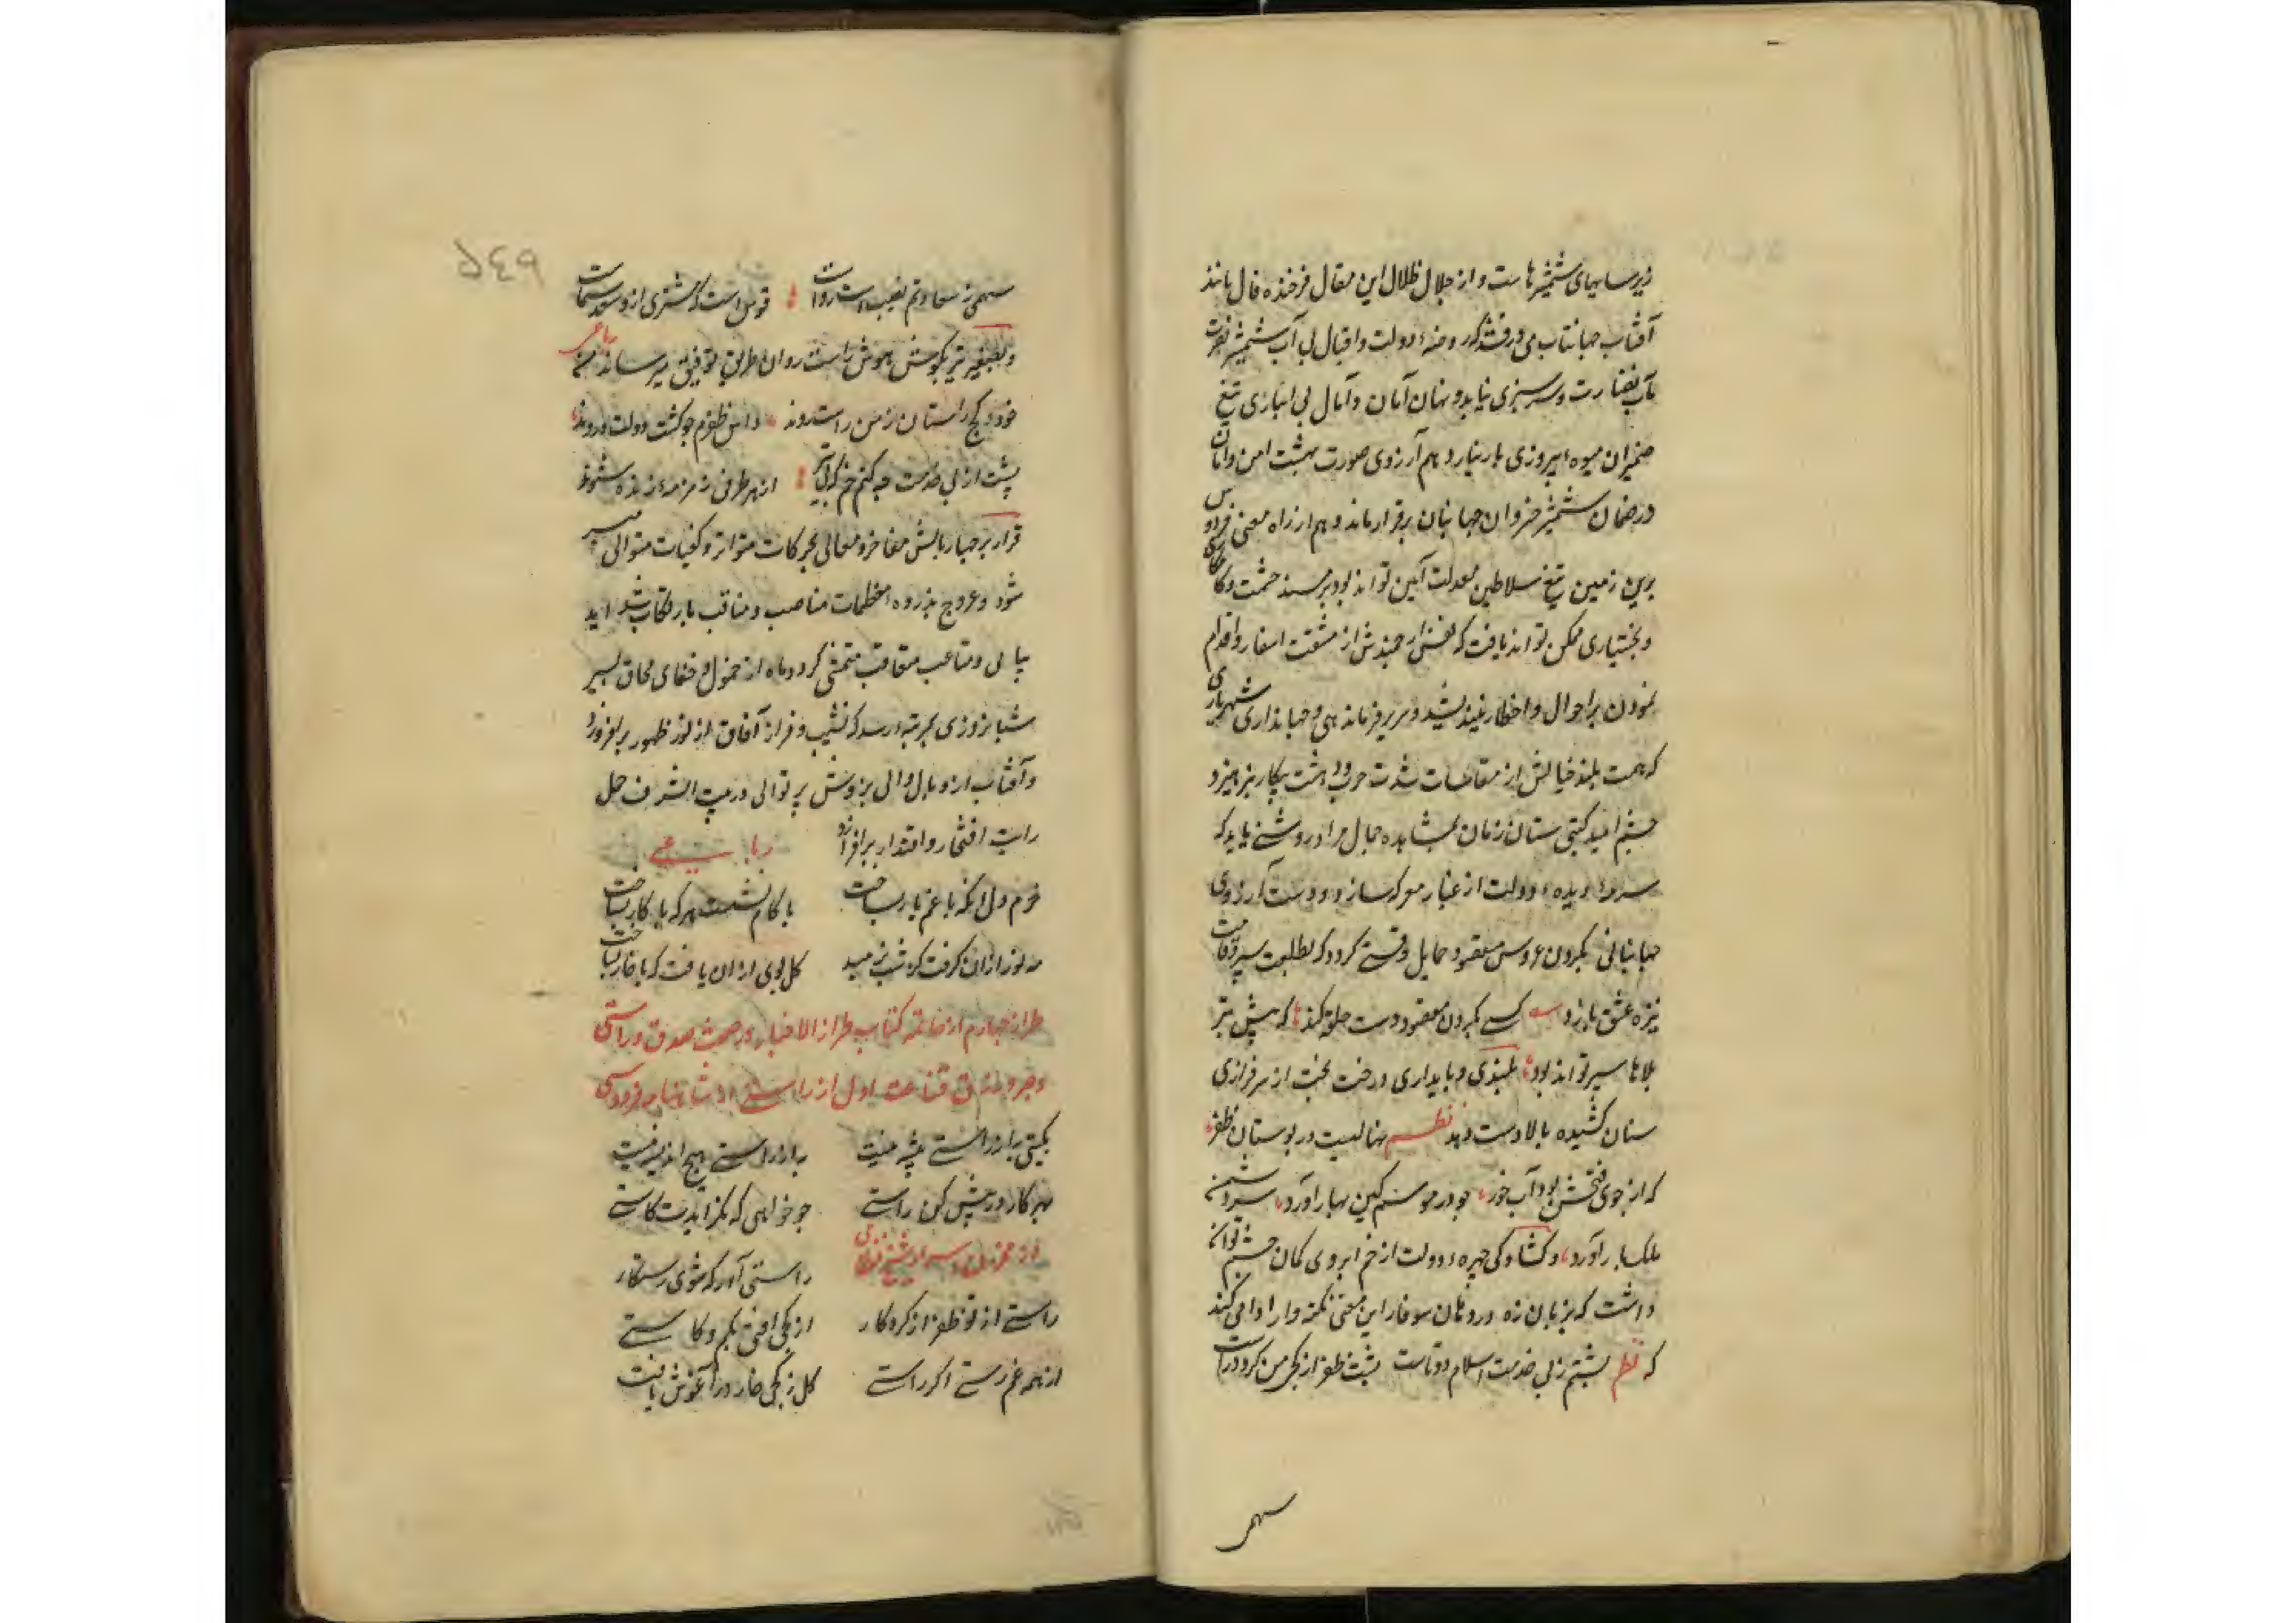 زیر سایهای شمشیرهاست و از جلال ظلال این مقال فرخنده فال مانند
آفتاب جهانتاب می درفشد که روضهٔ دولت و اقبال بی آب شمشیر نصرت
مآب نضارت و سرسبزی نیابد و نهال امان و آمال بی انبازی تیغ
ضمیران میوهٔ پیروزی بار نیارد هم آرزوی صورت بهشت امن و امان
در ضمان شمشیر خسروان جهانبان برقرار ماند و هم از راه معنی فردوس
برین زمین تیغ سلاطین معدلت آیین تواند بود بر مسند حشمت و
و بختیاری ممکن تواند یافت که نفس ارجمندش از مشقت اسفار و اقدام
نمودن بر احوال و اخطار نیندیشد و سریر فرماندهی و جهانداری شهریاری
که همت بلند خیالش از مقاسات شدت حرب و دهشت پیکار نپرهیزد
چشم امید گیتی ستان زمان بمشاهده جمال مراد روشنی یابد که
سرمهٔ دیدهٔ دولت از غبار معرکه سازد و دست آرزوی
جهانبانی بگردن عروس مقصود حمایل وقتی گردد که بطلعت سرو قامت
نیزه عشق بازد کسی بگردن مقصود دست حلقه کند که پیش تیر
بلاها سپر تواند بود بلندی و پایداری درخت بخت از سرفرازی
سنان کشیده بالا دست دهد نظم نهالیست در بوستان ظفر
که از جوی فتحش بود آب خور چو در موسم کین بهار آورد سر دشمن
ملک بار آورد و گشادگی چهرهٔ دولت از خم ابروی کمان چشم توان
داشت که بزبان زه در دهان سوفار این معنی نکته وار ادا می کند
که نظم پشتم ز پی خدمت اسلام دوتاست پشت ظفر از کجی من گردد راست
سهمی
٥٤٩
سهمی ز سعادتم نصیب است روا قوس است که مشتری ازو سعد سماست
و بصفیر تیر بگوش هوش راست روان طریق توفیق میرساند رباعی
خود کج و راستان ز من راست روند داس ظفرم چو کشت دولت دروند
پشت از پی خدمت چو کنم خم از هر طرفی زمزمهٔ زه شنوند
قرار بر چهار بالش مفاخر و معالی بحرکات متواتر و متوالی میسر
شود و عروج بذروهٔ مناصب و مناقب بارتکاب شداید
پیاپی و متاعب متعاقب متمشی گردد ماه از خمول و خفای محاق بسیر
شبانروزی بمرتبه رسد که نشیب و فراز آفاق از نور ظهور برافروزد
و آفتاب از وبال والی پرتوالی در بیت الشرف حمل
رایت افتخار و اقتدار برافرازد رباعی
خرم دل آنکه با غم یار بساخت با کام نشست هر که با کار بساخت
مه نور ازان گرفت کز شب نرمید گل بوی ازان یافت که با خار بساخت
طراز چهارم از خاتمه کتاب طراز الاخبار در صفت صدق و راستی
قناعت اول از راستی از شاهنامه فردوسی
بگیتی به از راستی پیشه نیست به از راستی هیچ اندیشه نیست
بهر کار در پیش کن راستی چو خواهی که نگزایدت کاستی
از مخزن اسرار شیخ نظامی راستی آور که شوی رستگار
راستی از تو ظفر از کردگار از کجی افتی بکم و کاستی
از همه غم رستی اگر راستی گل ز کجی خار در آغوش یافت